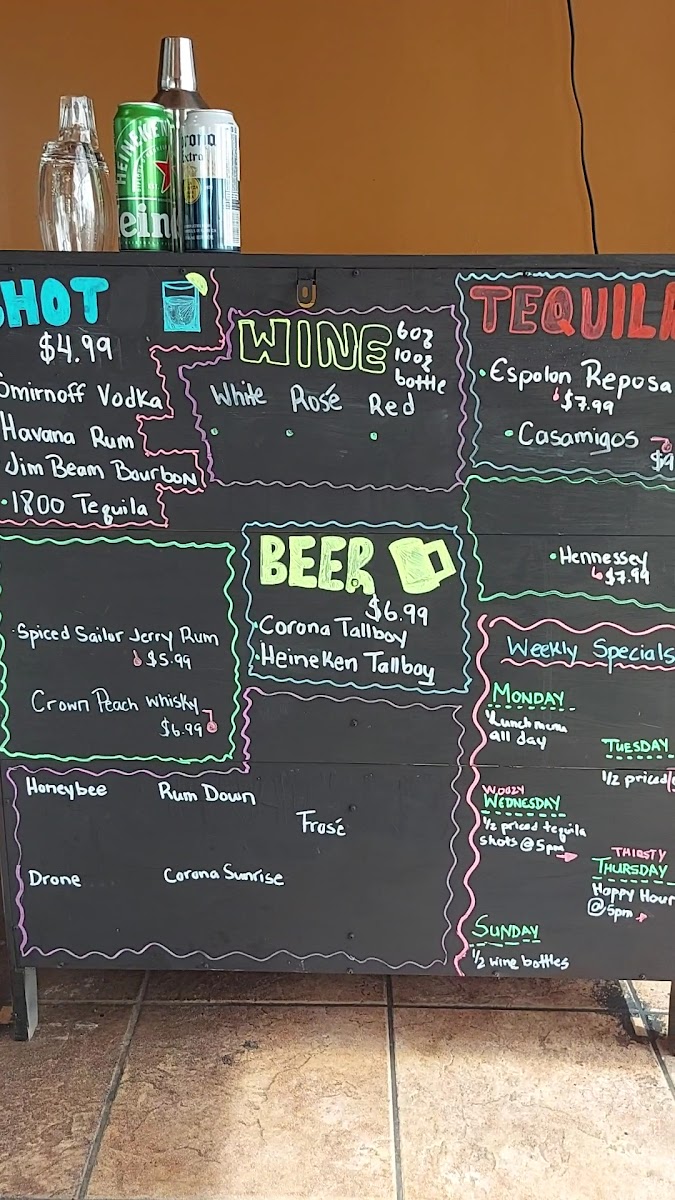 HEINEKEN
Hein
Corona
Extra
SHOT
$4.99
Smirnoff Vodka
Havana Rum
Jim Beam Bourbon
·1800 Tequila
WINE
6oz
10oz
bottle
White Rosé Red
TEQUILA
·Espolon Reposa
$7.99
·Casamigos
$9
·Hennessey
$7.99
BEER
$6.99
·Corona Tallboy
·Heineken Tallboy
·Spiced Sailor Jerry Rum
$5.99
Crown Peach whisky
$6.99
Honeybee Rum Down
Frosé
Drone Corona Sunrise
Weekly Specials
MONDAY
Lunch menu
all day
TUESDAY
1/2 priced
WOOZY
WEDNESDAY
1/2 priced tequila
shots @ 5pm
THIRSTY
THURSDAY
Happy Hour
@ 5pm
SUNDAY
1/2 wine bottles